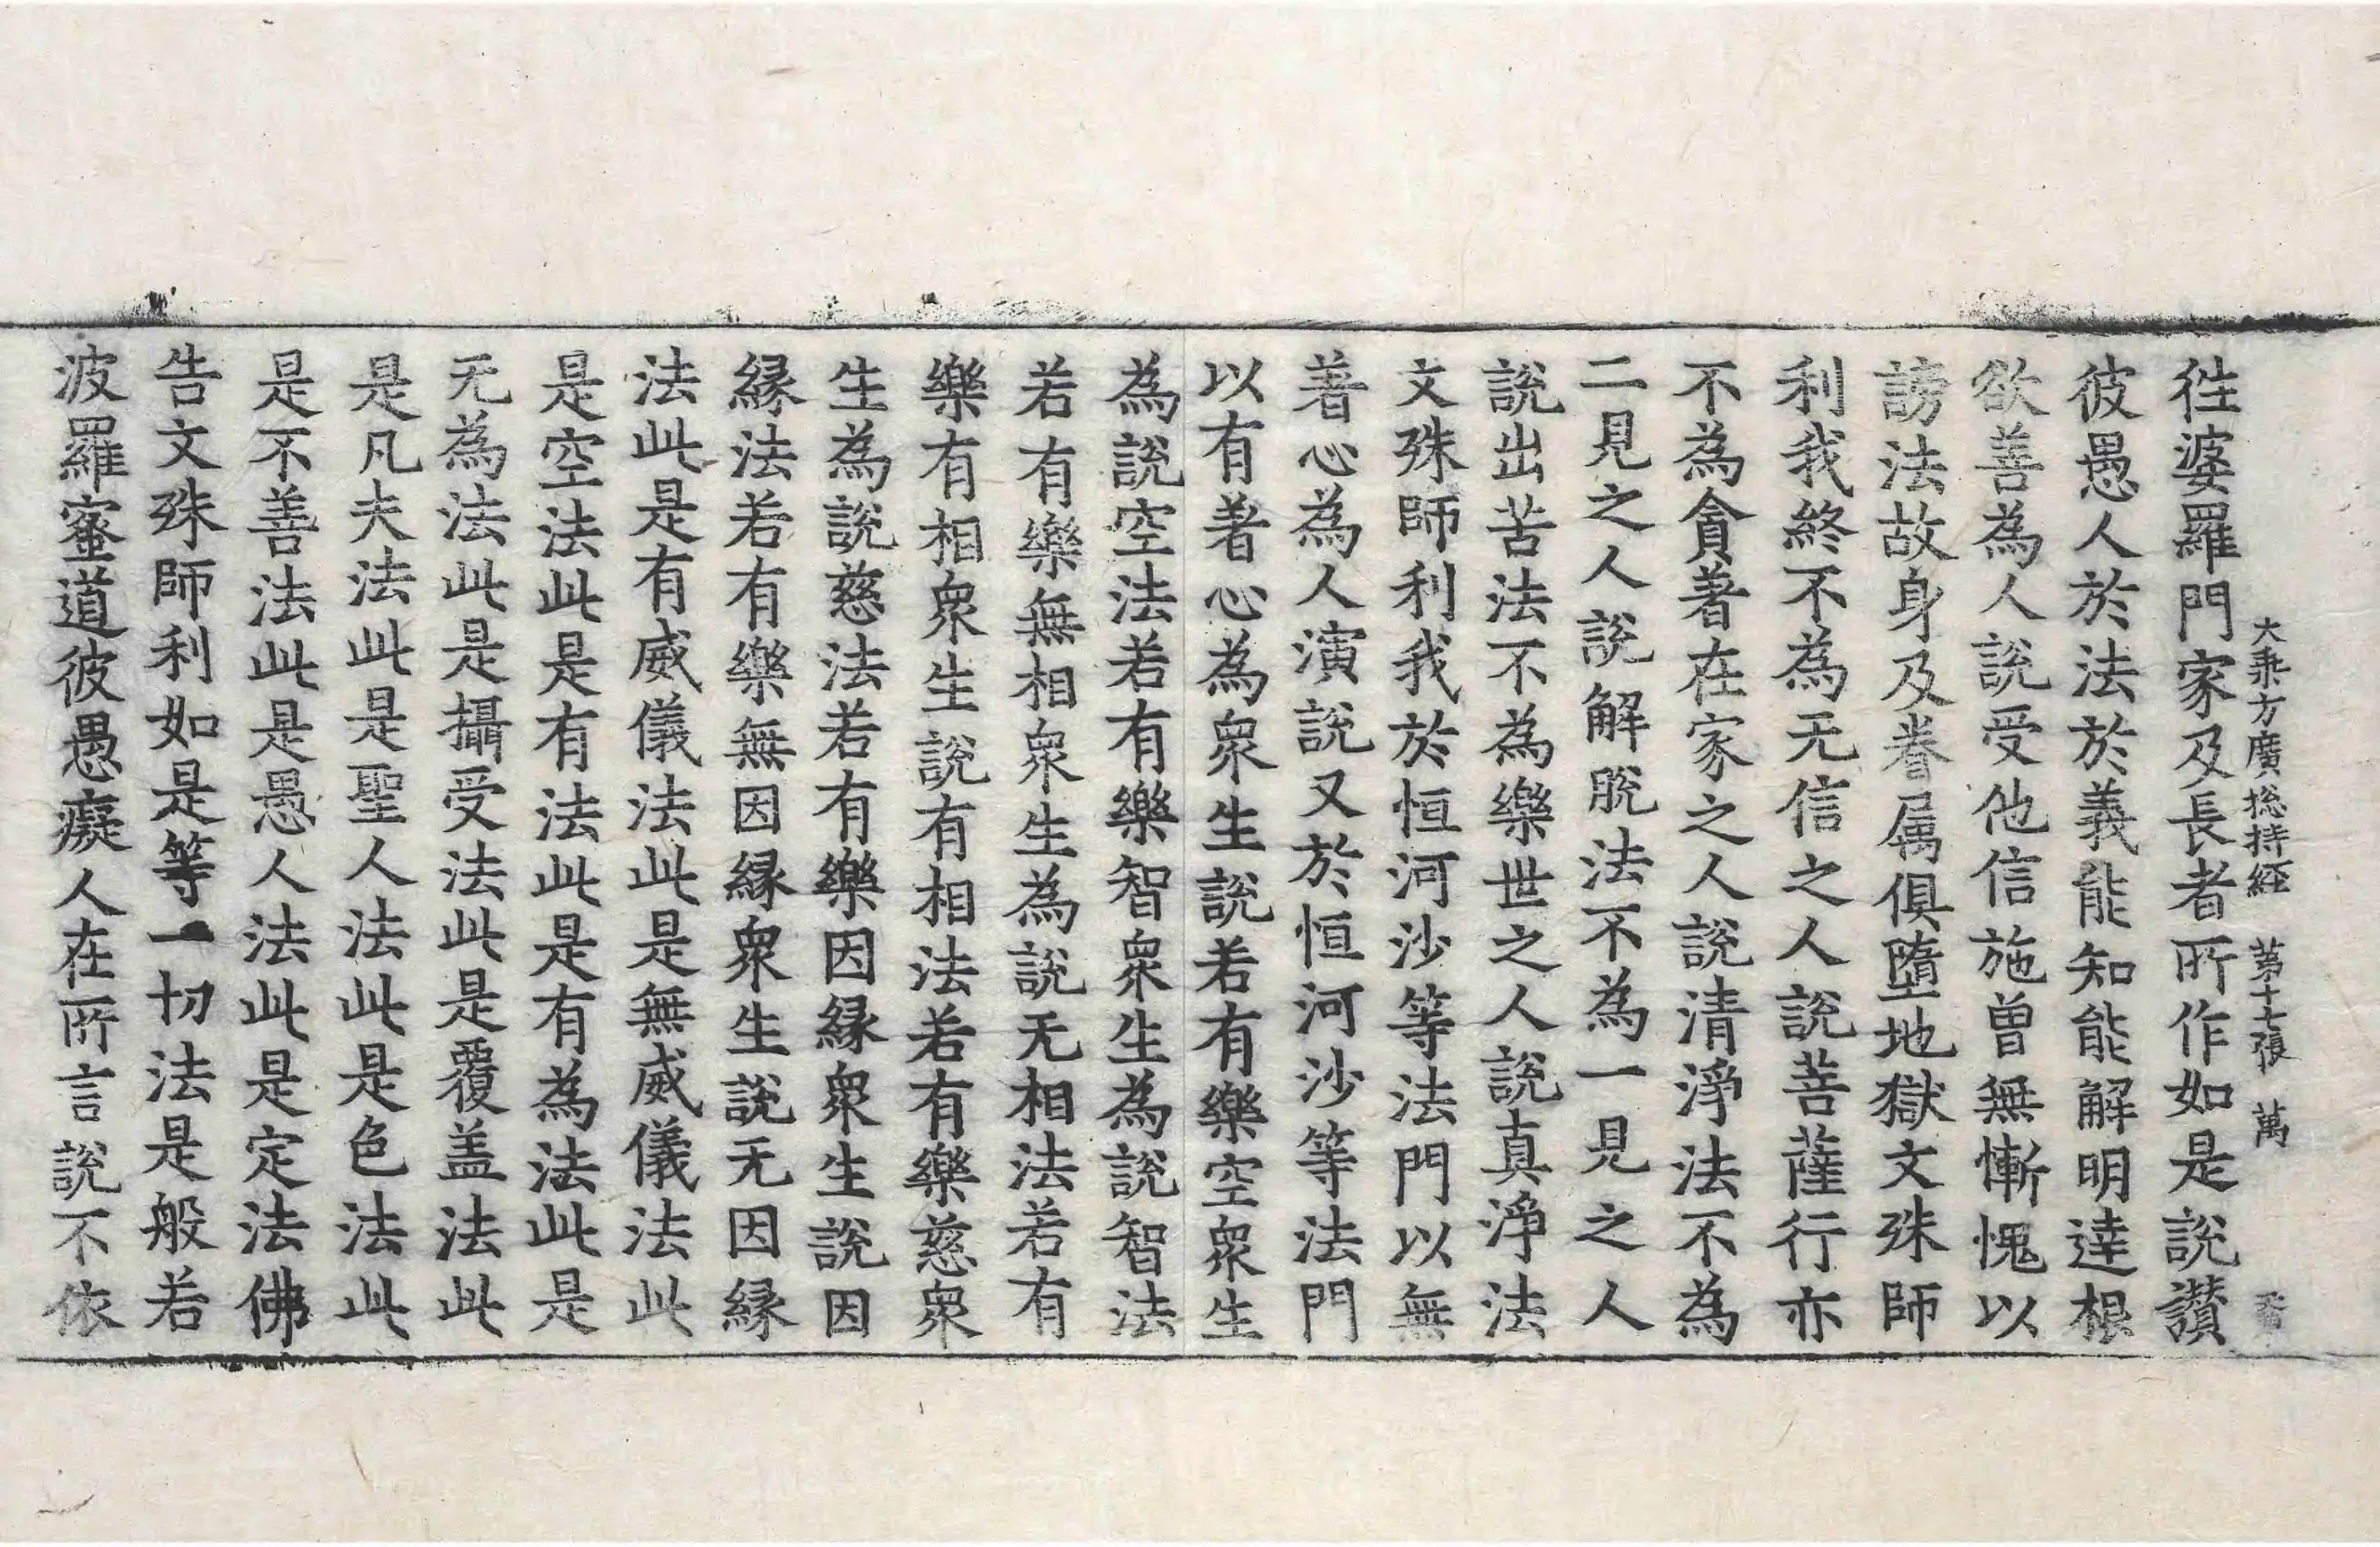 大乘方廣惣持経 第十七張 萬
徃婆羅門家及長者所作如是說讃
彼愚人於法於義能知能解明達根
欲善為人說受他信施曾無慚愧以
謗法故身及眷属俱墮地獄文殊師
利我終不為无信之人說菩薩行亦
不為貪著在家之人說清淨法不為
二見之人說解脫法不為一見之人
說出苦法不為樂世之人說真淨法
文殊師利我於恒河沙等法門以無
著心為人演說又於恒河沙等法門
以有著心為衆生說若有樂空衆生
為說空法若有樂智衆生為說智法
若有樂無相衆生為說无相法若有
樂有相衆生說有相法若有樂慈衆
生為說慈法若有樂因縁衆生說因
縁法若有樂無因縁衆生說无因縁
法此是有威儀法此是無威儀法此
是空法此是有法此是有為法此是
无為法此是攝受法此是覆盖法此
是凡夫法此是聖人法此是色法此
是不善法此是愚人法此是定法佛
告文殊師利如是等一切法是般若
波羅蜜道彼愚癡人在所言說不依